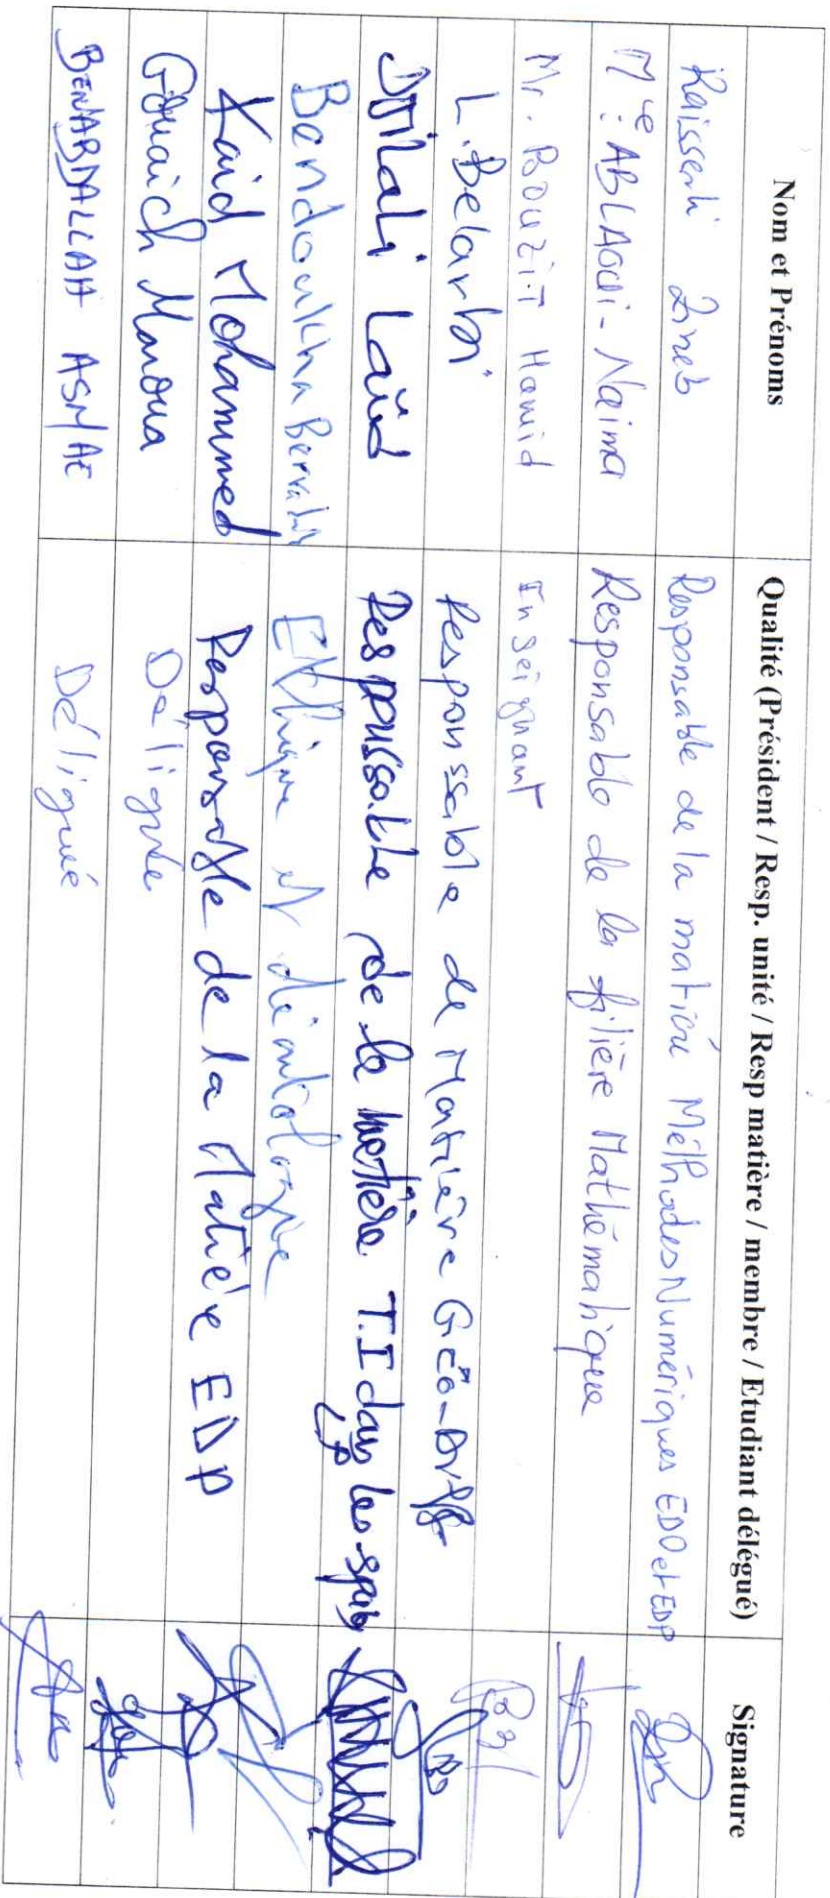 Nom et Prénoms Qualité (Président / Resp. unité / Resp matière / membre / Etudiant délégué) Signature
Kaisserli Zineb Responsable de la matière Méthodes Numériques EDO et EDP
Mlle: ABLAOUI-Naima Responsable de la filière Mathématique
Mr. Bouzit Hamid Enseignant
L. Belarbi Responssable de Matière Géo-Diff
Djilali Laïd Responsable de la matière T.I dans les esp
Bendoukha Ethique et déontologie
Kaid Mohammed Responsable de la Matière EDP
Gouaich Maroua Déliguée
BENABDALLAH ASMAE Déliguée